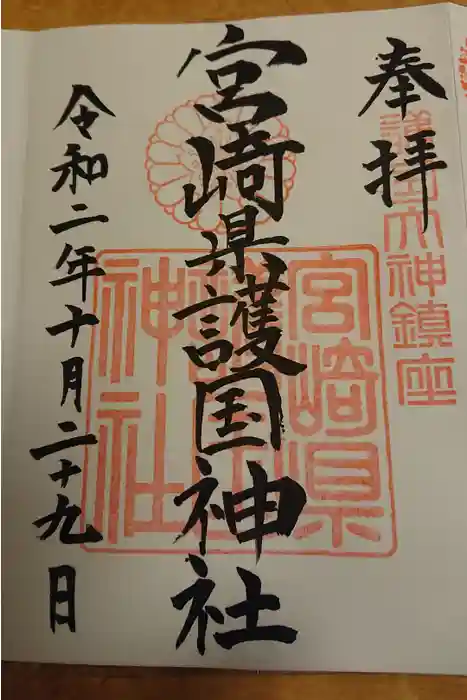 奉拝
護国大神鎮座
宮崎県護国神社
宮崎県
護国
神社
令和二年十月二十九日